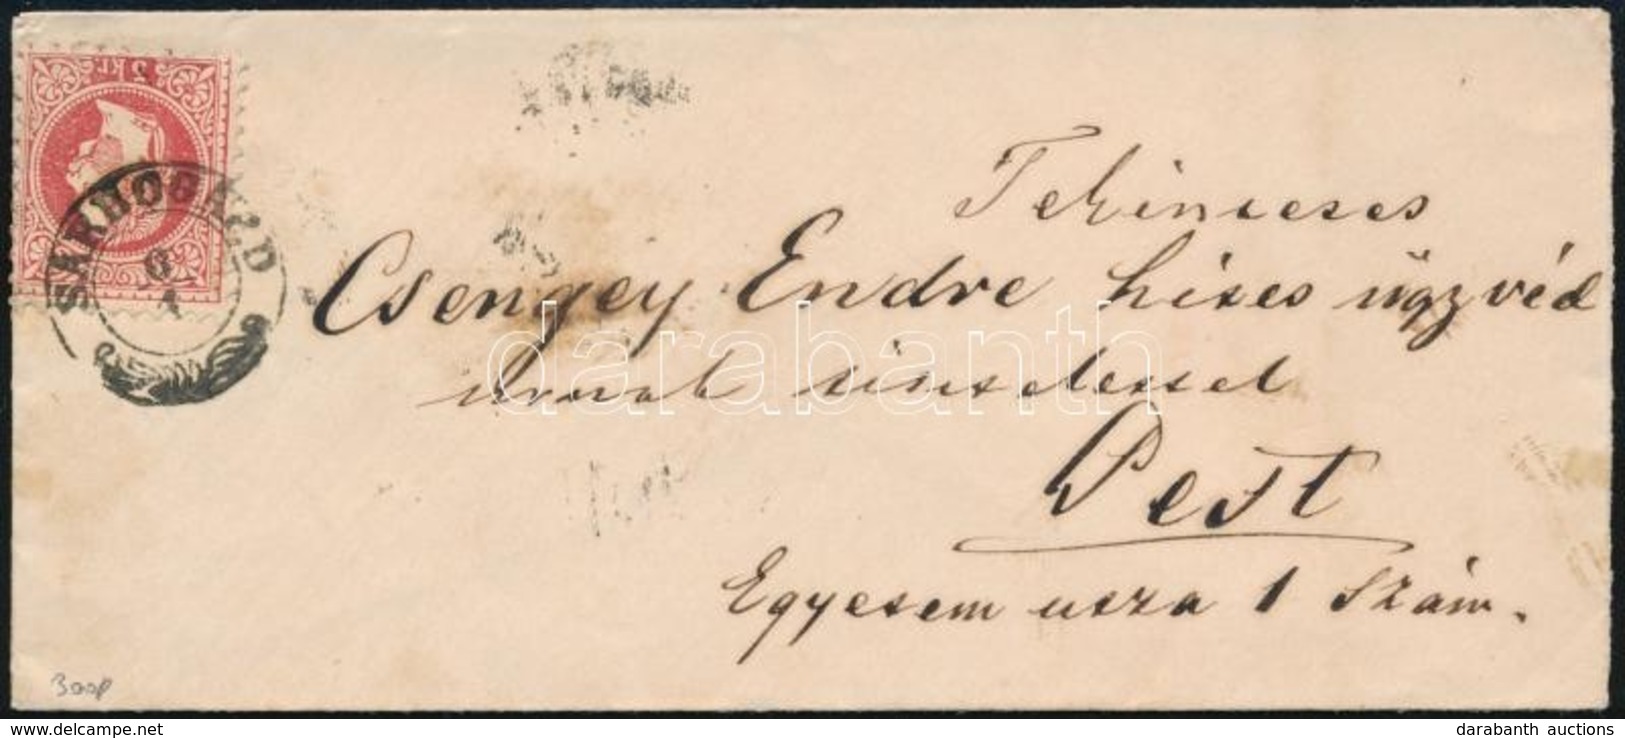 5 kr
SÁRBOGÁRD
Tekintetes
Csengey Endre hites ügyvéd
urnak tisztelettel
Pest
Egyetem utza 1 szám.
darabanth
darabanth auctions